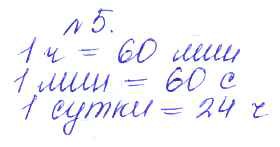 №5.
1 ч = 60 мин
1 мин = 60 с
1 сутки = 24 ч